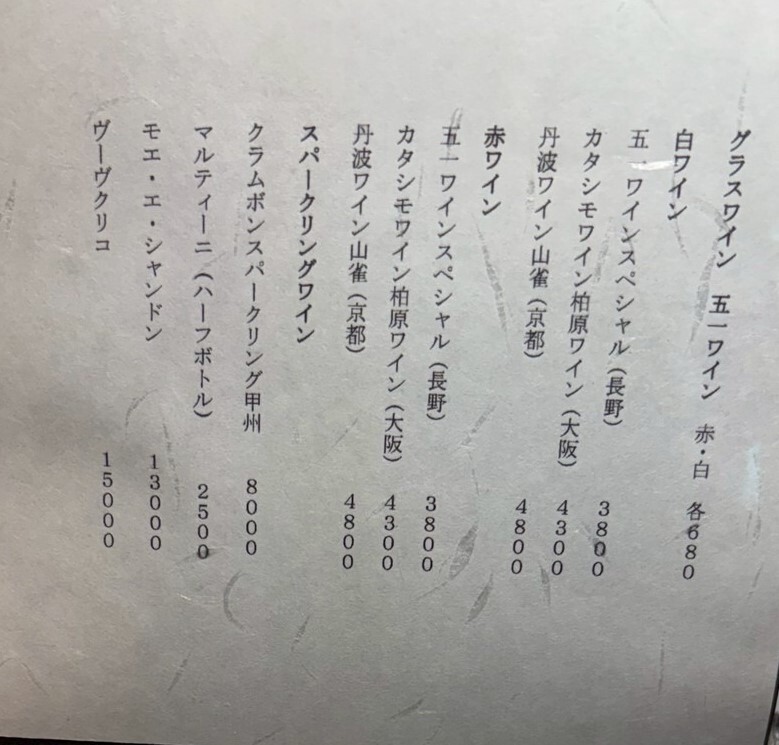 グラスワイン 五一ワイン 赤・白 各680
白ワイン
五一ワインスペシャル(長野) 3800
カタシモワイン柏原ワイン(大阪) 4300
丹波ワイン山雀(京都) 4800
赤ワイン
五一ワインスペシャル(長野) 3800
カタシモワイン柏原ワイン(大阪) 4300
丹波ワイン山雀(京都) 4800
スパークリングワイン
クラムボンスパークリング甲州 8000
マルティーニ(ハーフボトル) 2500
モエ・エ・シャンドン 13000
ヴーヴクリコ 15000